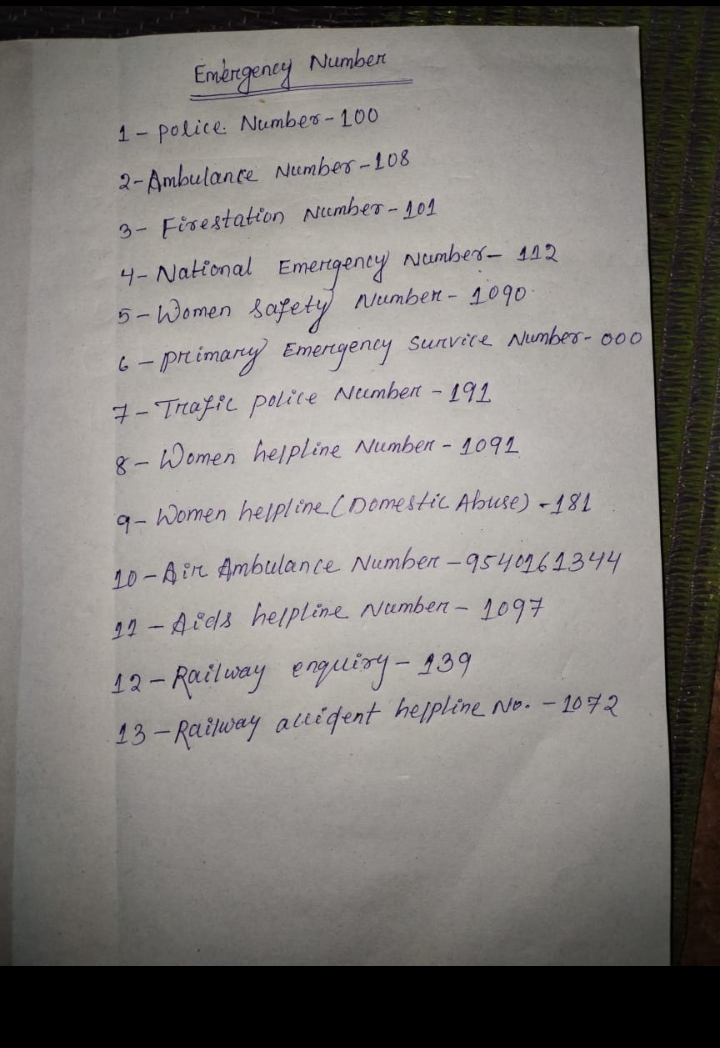 Emergency Number
1 - police Number - 100
2 - Ambulance Number - 108
3 - Firestation Number - 101
4 - National Emergency Number - 112
5 - Women Safety Number - 1090
6 - primary Emergency Survice Number - 000
7 - Trafic police Number - 191
8 - Women helpline Number - 1091
9 - Women helpline (Domestic Abuse) - 181
10 - Air Ambulance Number - 9540161344
11 - Aids helpline Number - 1097
12 - Railway enquiry - 139
13 - Railway accident helpline No. - 1072